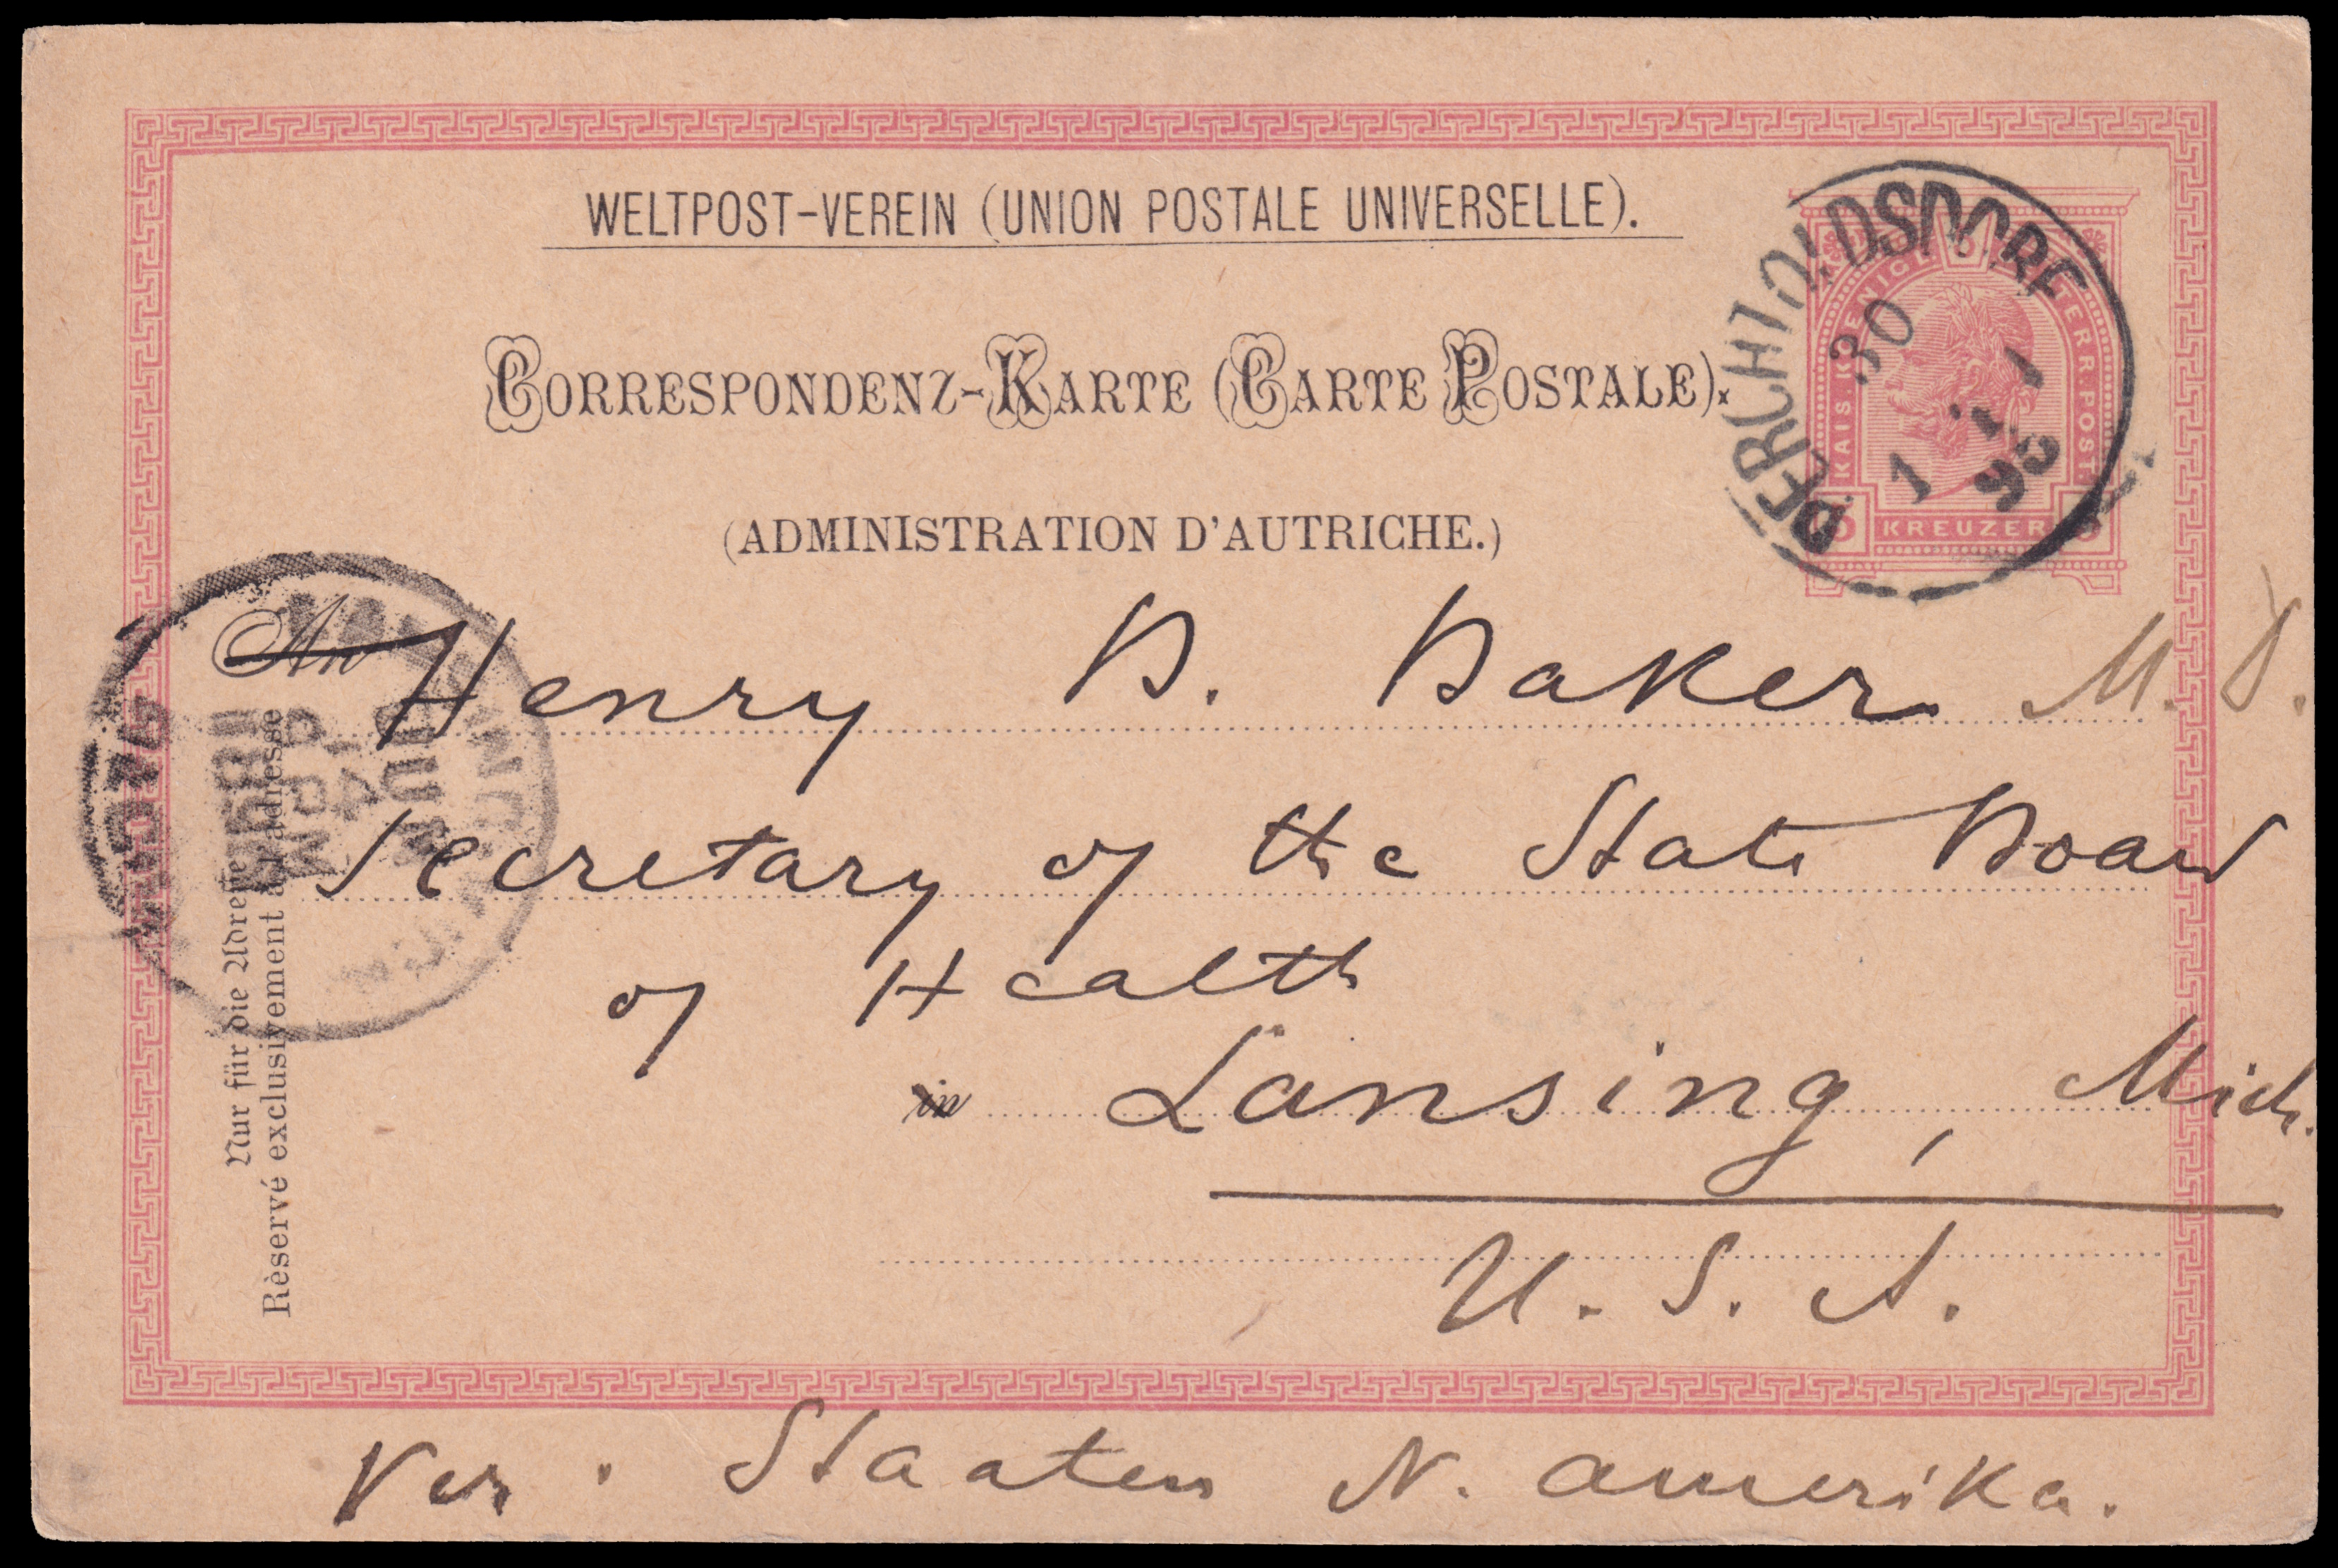 WELTPOST-VEREIN (UNION POSTALE UNIVERSELLE).
CORRESPONDENZ-KARTE (CARTE POSTALE).
(ADMINISTRATION D'AUTRICHE.)
KAIS. KOENIGL. OESTERR. POST
5 KREUZER 5
PERCHTOLDSDORF
30
1
98
An
Henry B. Baker M. D.
Secretary of the State Board
of Health
in Lansing, Mich.
U. S. A.
Ver. Staaten N. Amerika.
Nur für die Adresse
Rèservé exclusivement à l'adresse